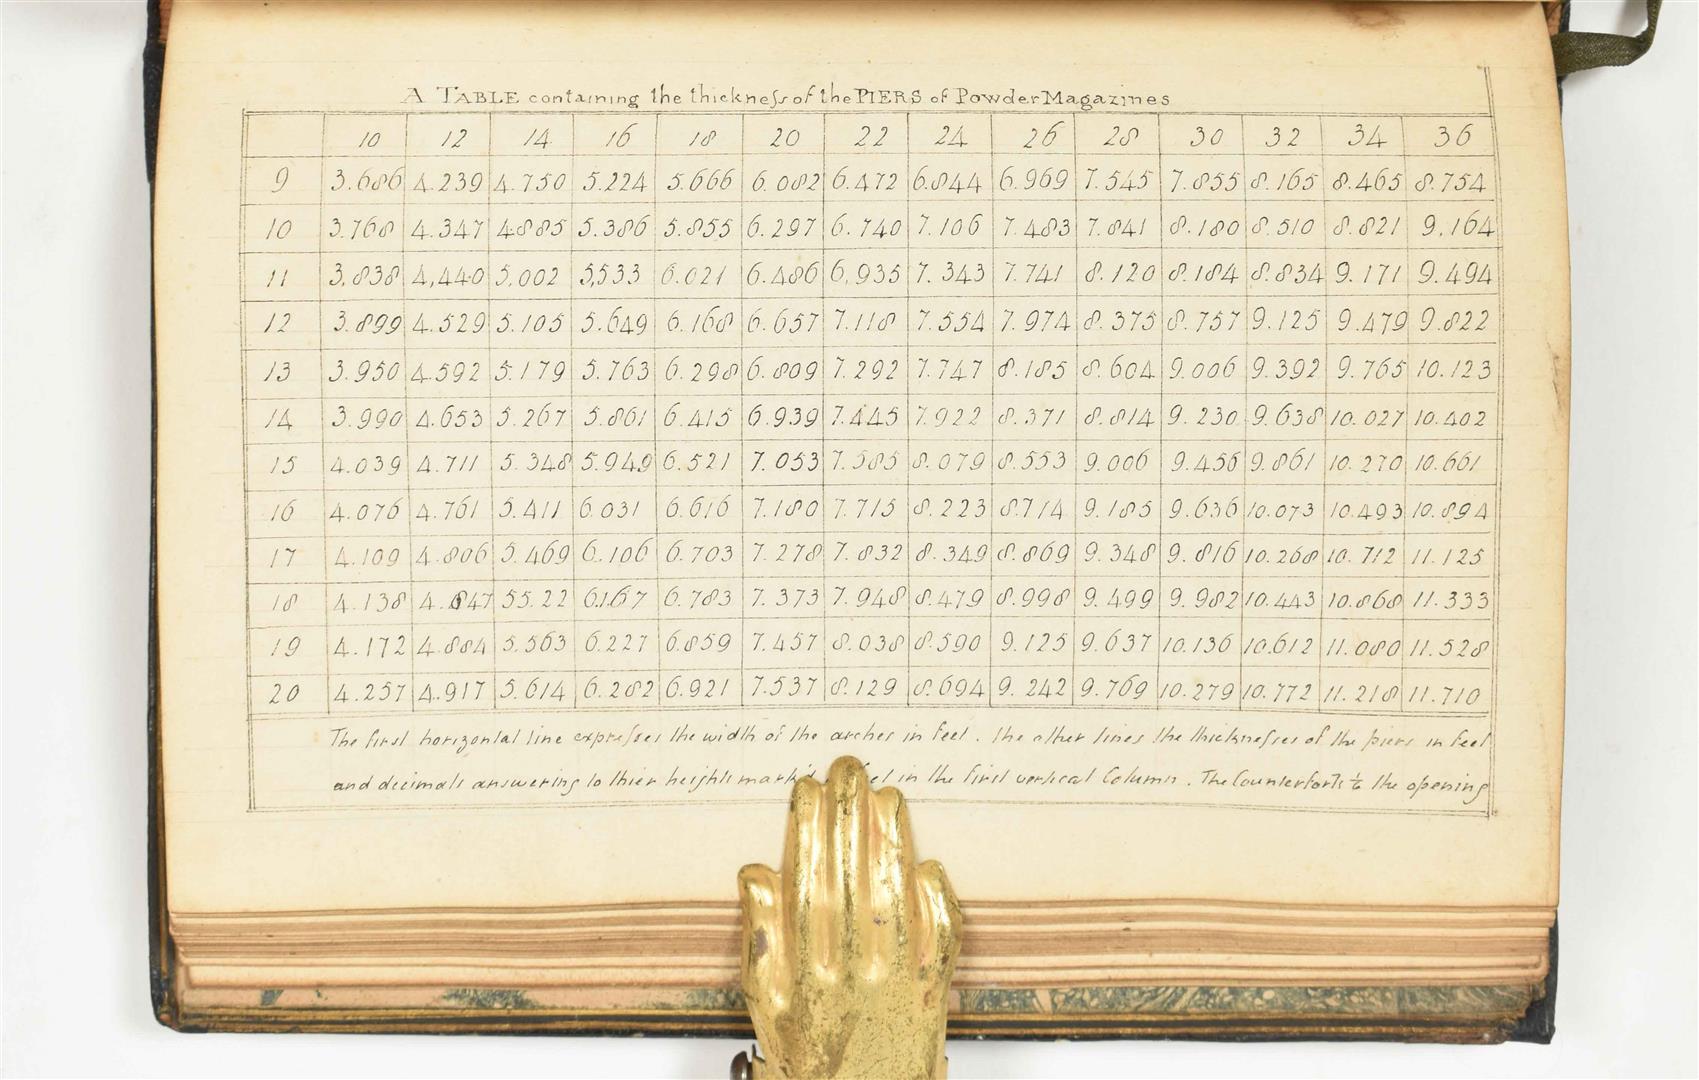 A TABLE containing the thickneſs of the PIERS of Powder Magazines
10 12 14 16 18 20 22 24 26 28 30 32 34 36
9 3.686 4.239 4.750 5.224 5.666 6.082 6.472 6.844 6.969 7.545 7.855 8.165 8.465 8.754
10 3.768 4.347 4.885 5.386 5.855 6.297 6.740 7.106 7.483 7.841 8.180 8.510 8.821 9.164
11 3.838 4,440 5.002 5,533 6.021 6.486 6,935 7.343 7.741 8.120 8.184 8.834 9.171 9.494
12 3.899 4.529 5.105 5.649 6.168 6.657 7.118 7.554 7.974 8.375 8.757 9.125 9.479 9.822
13 3.950 4.592 5.179 5.763 6.298 6.809 7.292 7.747 8.185 8.604 9.006 9.392 9.765 10.123
14 3.990 4.653 5.267 5.861 6.415 6.939 7.445 7.922 8.371 8.814 9.230 9.638 10.027 10.402
15 4.039 4.711 5.348 5.949 6.521 7.053 7.585 8.079 8.553 9.006 9.456 9.861 10.270 10.661
16 4.076 4.761 5.411 6.031 6.616 7.180 7.715 8.223 8.714 9.185 9.636 10.073 10.493 10.894
17 4.109 4.806 5.469 6.106 6.703 7.278 7.832 8.349 8.869 9.348 9.816 10.268 10.712 11.125
18 4.138 4.847 55.22 6.167 6.783 7.373 7.948 8.479 8.998 9.499 9.982 10.443 10.868 11.333
19 4.172 4.884 5.563 6.227 6.859 7.457 8.038 8.590 9.125 9.637 10.136 10.612 11.080 11.528
20 4.257 4.917 5.614 6.282 6.921 7.537 8.129 8.694 9.242 9.769 10.279 10.772 11.218 11.710
The first horizontal line expreſses the width of the arches in feet. the other lines the thickneſses of the piers in feet
and decimals answering to thier heights mark'd in the first vertical Column. The Counterforts ½ the opening